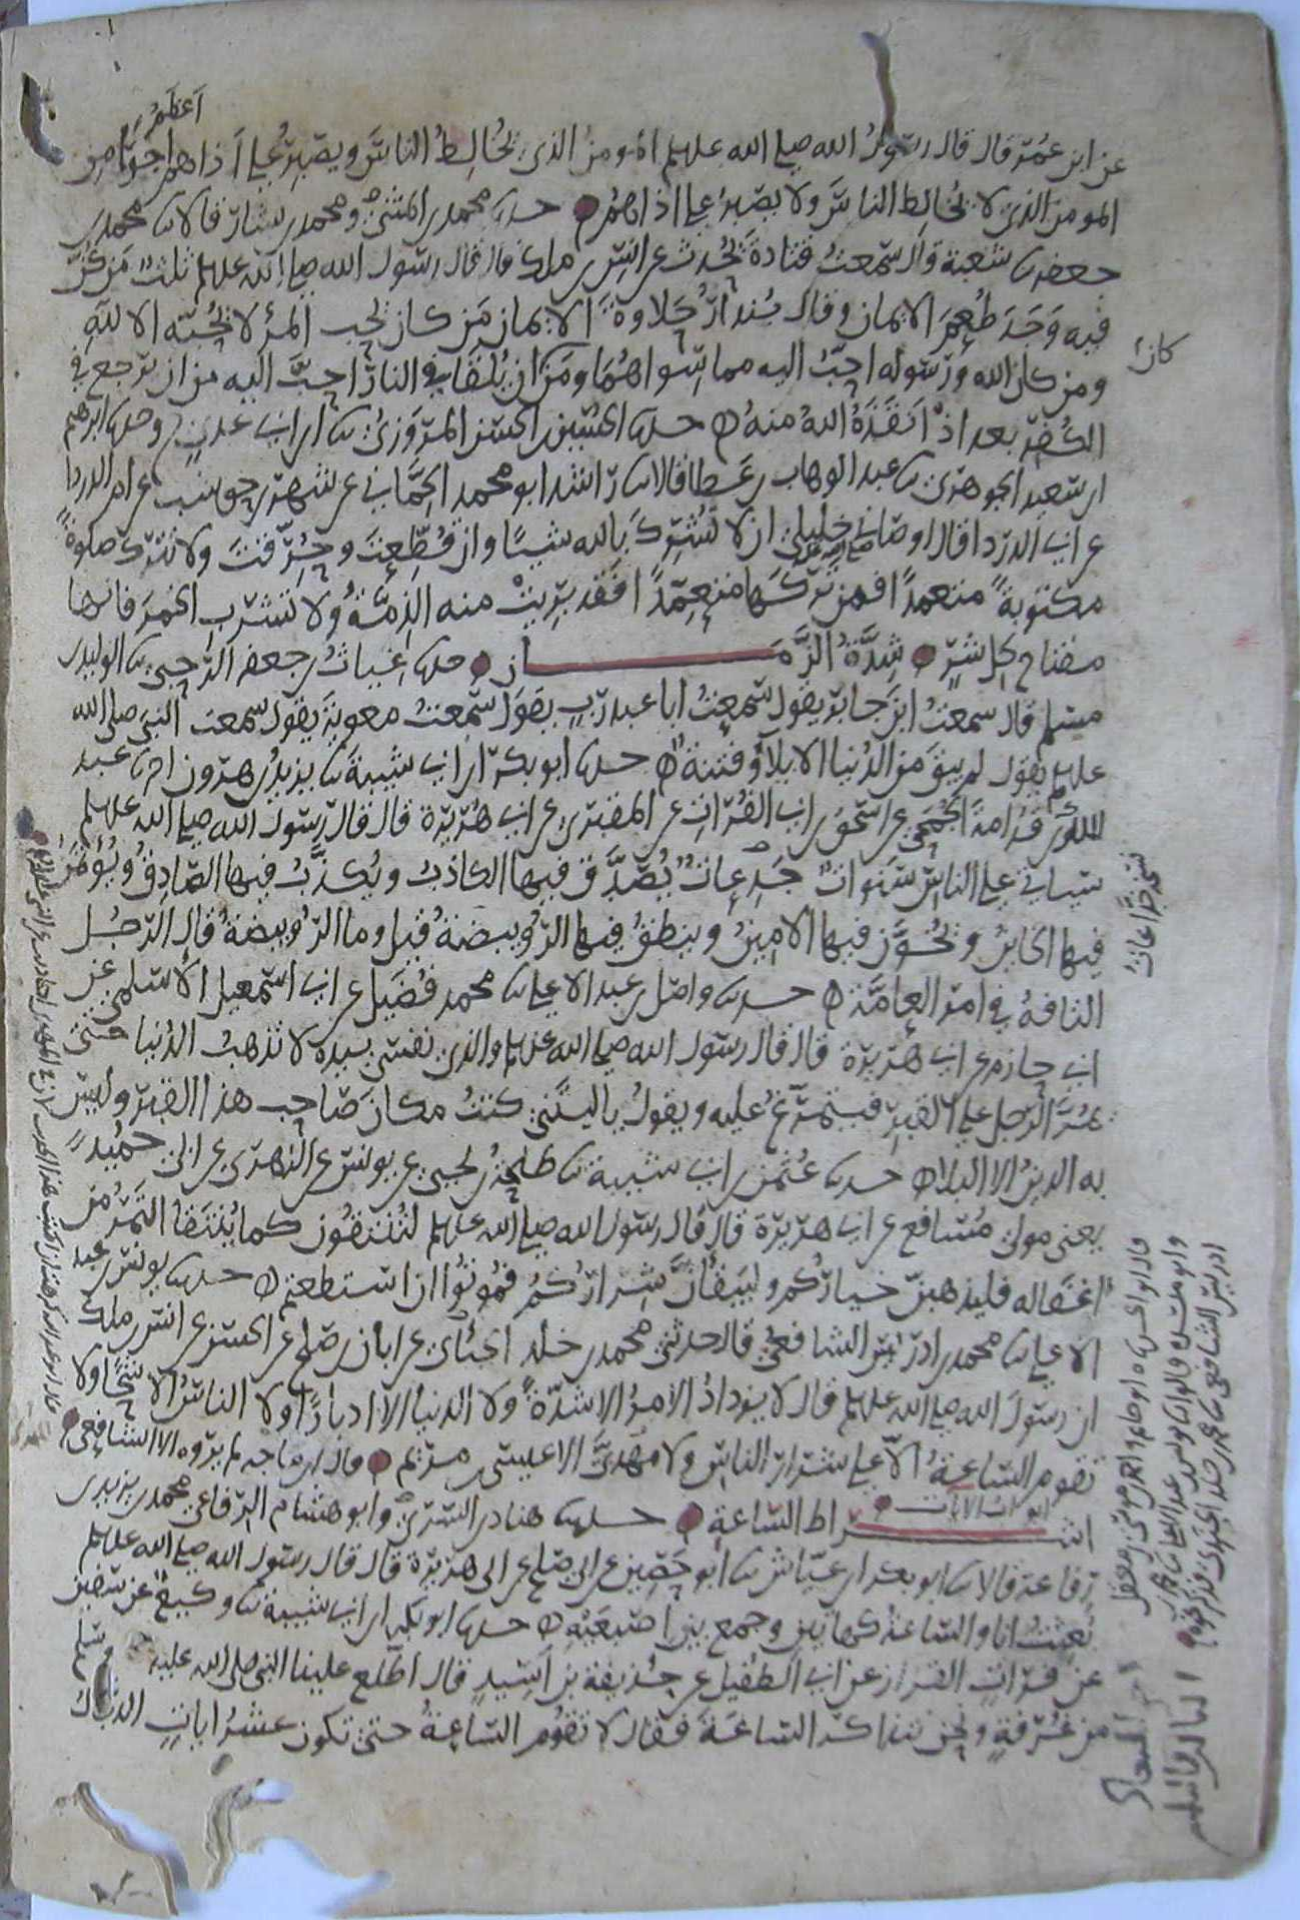 أعظمُ
عن ابن عُمَرَ قال قال رسولُ الله صلى الله عليهم المومنُ الذي يُخالِطُ الناسَ ويصْبِرُ على أذاهم اجرًا من
المومن الذي لا يُخالِطُ الناسَ ولا يصْبِرُ على اذاهُم حدثنا محمد بن المثنى ومحمد بن بشار قالا ثنا محمد بن
جعفر ثنا شعبة قال سمعتُ قتادةَ يُحدث عن انس بن ملك قال قال رسول الله صلى الله عليهم ثلثٌ مَن كُنَّ
فيه وَجَدَ طَعْمَ الايمان وقال بُندارٌ حَلاوةَ الايمان مَن كان يُحب المرْءَ لا يُحبّه الا لله
كان
ومن كان الله ورسوله احبَّ اليه مما سواهُمَا ومَن ان يُلقَا في النار احبَّ اليه من ان يرجع في
الكُفر بعد اذْ انقَذَهُ اللهُ منه حدثنا الحُسَين بن الحسن المروَزيُّ ثنا ابن ابي عدي ح وحدثنا ابرهيم
ابن سعيد الجوهري ثنا عبد الوهاب بن عَطا قالا ثنا راشد ابو محمد الحِمَّاني عن شهر بن حوشب عن ام الدردا
عن ابي الدردا قال اوصاني خليلي ان لا تُشْرِكَ بالله شيئًا وان قُطِّعتَ وحُرِّقتَ ولا تترك صلوةً
مكتوبةً متعمدًا فمن تركَها متعمِّدًا فقد بَرِيتْ منه الذِمَّةُ ولا تشربِ الخمرَ فانها
مفتاح كل شرٍّ شِدَّةُ الزَّمَان حدثنا غياثُ بن جعفر الرَّحَبي ثنا الوليد بن
مسلم قال سمعتُ ابن جابر يقول سمعتُ ابا عبد ربٍّ يقول سمعتُ معويةَ يقول سمعت النبي صلى الله
عليهم يقول لم يبقَ من الدُنيا الا بلاءٌ وفتنةٌ حدثنا ابو بكر ابن ابي شيبة ثنا يزيدُ بن هرون اخبرنا عبد
الملك بن قُدامةَ الجُمَحي عن اسحق بن ابي الفُرات عن المقبري عن ابي هُرَيرة قال قال رسول الله صلى الله عليهم
سياتي على الناس سَنواتٌ خَدَّعاتٌ يُصَدَّق فيها الكاذبُ ويُكذَّبُ فيها الصَّادِقُ ويُؤتمَنُ
فيها الخاينُ ويُخَوَّن فيها الامِينُ وينطقُ فيها الرُّوَيبضةُ قيل وما الرُّوَيبضةُ قال الرَّجُل
التافهُ في امر العامَّة حدثنا واصل بن عبد الاعلى ثنا محمد فُضَيل عن ابي اسمعيل الأسلمي عن
ابي حازم عن ابي هُرَيرة قال قال رسول الله صلى الله عليهم والذي نفسي بيده لا تذهبُ الدُنيا حتى
يمُرَّ الرَّجل على القبر فيتمرَّغُ عليه ويقولُ ياليتَني كنتُ مكانَ صَاحِب هذا القبر وليسَ
به الدينُ الا البلا حدثنا عُثمن بن ابي شيبة ثنا طلحةُ بن يحيى عن يونس عن الزهري عن ابي حُمَيد
يعني مولى مُسَافع عن ابي هريرة قال قال رسول الله صلى الله عليهم لتُنتَقُون كما يُنتقا التَمرُ من
اغفاله فليذهبنَّ خياركُم وليبقَينَّ شِرارُكُم فمُوتُوا ان استطعتم حدثنا يونس بن عبد
الاعلى ثنا محمد بن ادريس الشافعي قال حدثني محمد بن خلد الجنَدي عن ابان بن صَالح عن الحسن عن انس بن ملك
ان رسولَ الله صلى الله عليهم قال لا يزداذُ الأمرُ الا شدّةً ولا الدنيا الا ادبارًا ولا الناسُ الا شُحًّا ولا
تقوم السَّاعةُ الاّ على شِرار الناس ولا مهديَّ الا عيسى بن مريم قال ابن ماجه لم يروه الا الشافعي
ابواب الايات
اشْراط السَّاعةِ حدثنا هناد بن السَّريّ وابو هشام الرفاعي محمد بن يزيد بن
رفاعة قالا ثنا ابو بكر بن عيّاش ثنا ابو حَصِين عن ابي صَالح عن ابي هريرة قال قال رسول الله صلى الله عليهم
بُعِثتُ انا والسَّاعةُ كهاتين وجمع بين اصْبعَيْه حدثنا ابو بكر ابن ابي شيبة ثنا وكيعٌ عن سفين
عن فُراتٍ القزاز عن ابي الطُفيل عن حُذيفة بن أَسيدٍ قال اطّلع علينا النبي صلى الله عليه وسلم
من غُرْفةٍ ونحن نتذاكر السَّاعةَ فقال لا تقومُ السَّاعةُ حتى تكون عشرُ اياتٍ الدجال
قال ابو الحسن ثنا ابو حاتم
ثنا يونس بن عبد الاعلى ثنا محمد بن
ادريس الشافعي ثنا محمد بن خلد الجندي